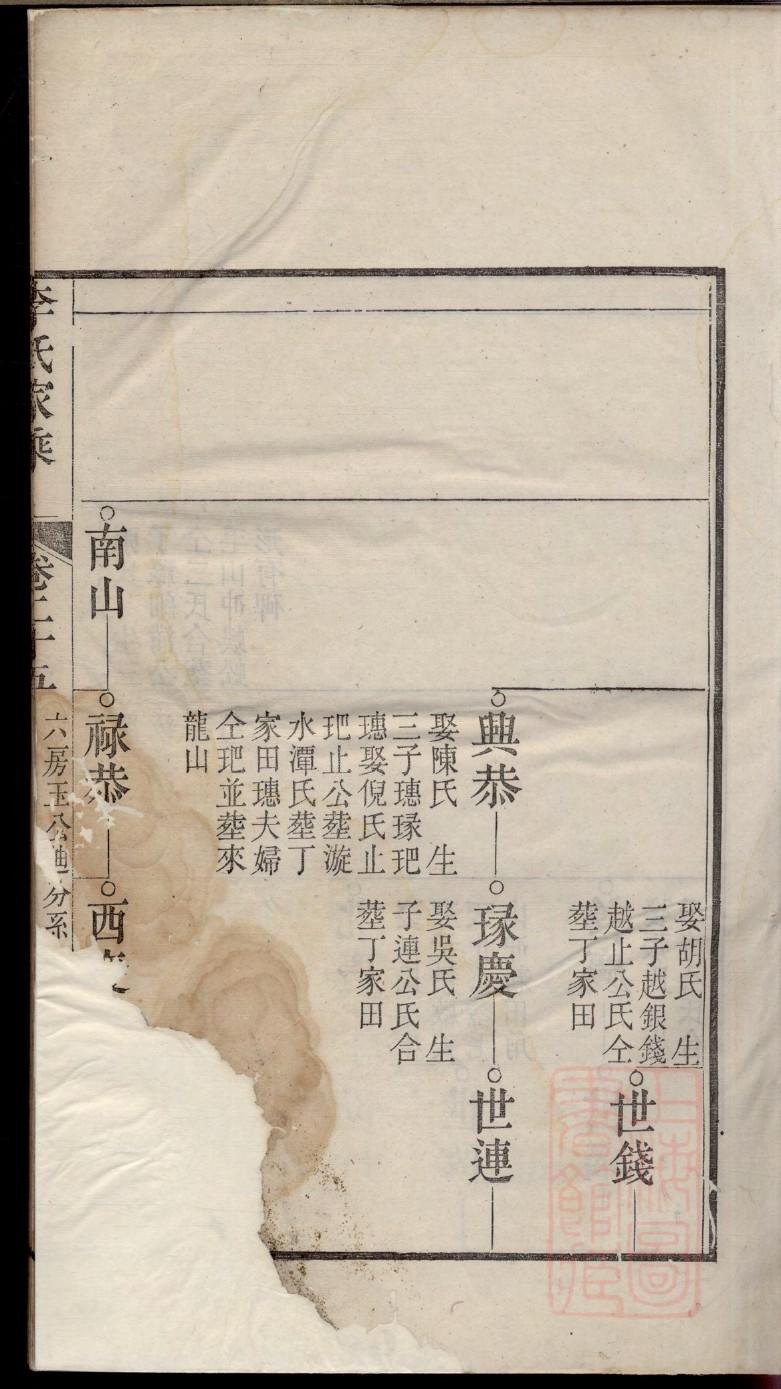 娶胡氏 生
三子越銀錢
越止公氏仝
塟丁家田
世錢
興恭
娶陳氏 生
三子璤瑑玸
璤娶倪氏止
玸止公塟漩
水潭氏塟丁
家田璤夫婦
仝玸並塟來
龍山
瑑慶
娶吳氏 生
子連公氏合
塟丁家田
世連
南山
禄恭
西
李氏家乘
卷二十五
六房玉公迪分系